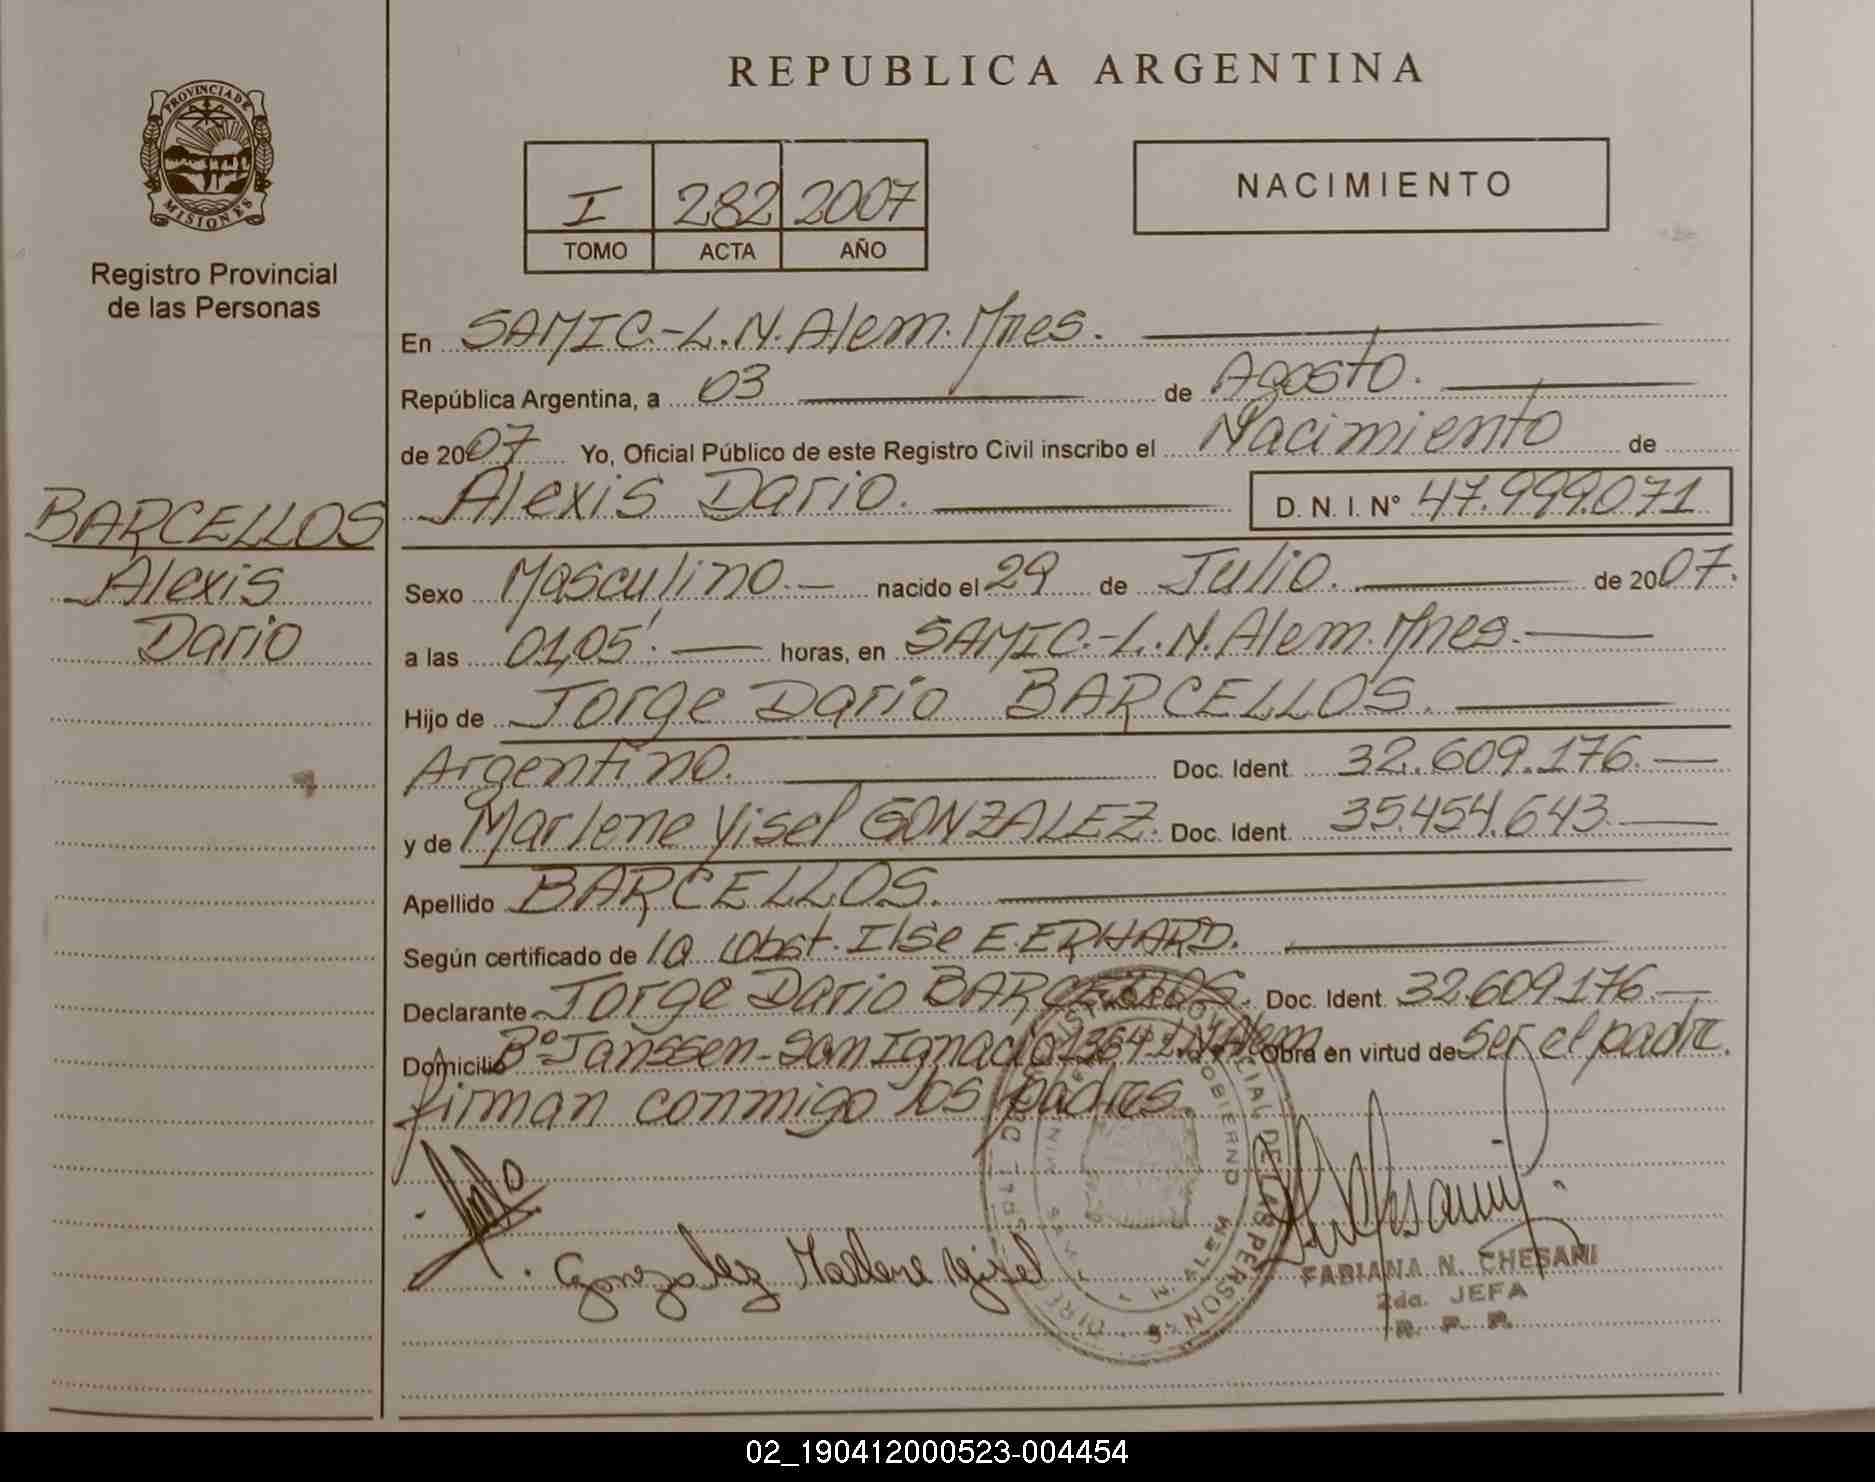 REPUBLICA ARGENTINA
PROVINCIA DE
MISIONES
Registro Provincial
de las Personas
I 282 2007
TOMO ACTA AÑO
NACIMIENTO
En SAMIC.-L.N.Alem.Mnes.
República Argentina, a 03 de Agosto.
de 2007 Yo, Oficial Público de este Registro Civil inscribo el Nacimiento de
Alexis Dario. D. N. I. N° 47.999.071
BARCELLOS
Alexis
Dario
Sexo Masculino.- nacido el 29 de Julio. de 2007.
a las 01,05'. horas, en SAMIC.-L.N.Alem.Mnes.
Hijo de Jorge Dario BARCELLOS.
Argentino. Doc. Ident. 32.609.176.
y de Marlene Yisel GONZALEZ. Doc. Ident. 35.454.643
Apellido BARCELLOS.
Según certificado de la Obst. Ilse E. ERHARD.
Declarante Jorge Dario BARCELLOS. Doc. Ident. 32.609.176
Domicilio B° Janssen-San Ignacio 1364 L.N.Alem. Obra en virtud de ser el padre.
firman conmigo los padres.
Gonzalez Marlene Yisel
FABIANA N. CHESANI
2da. JEFA
R. P. P.
02_190412000523-004454